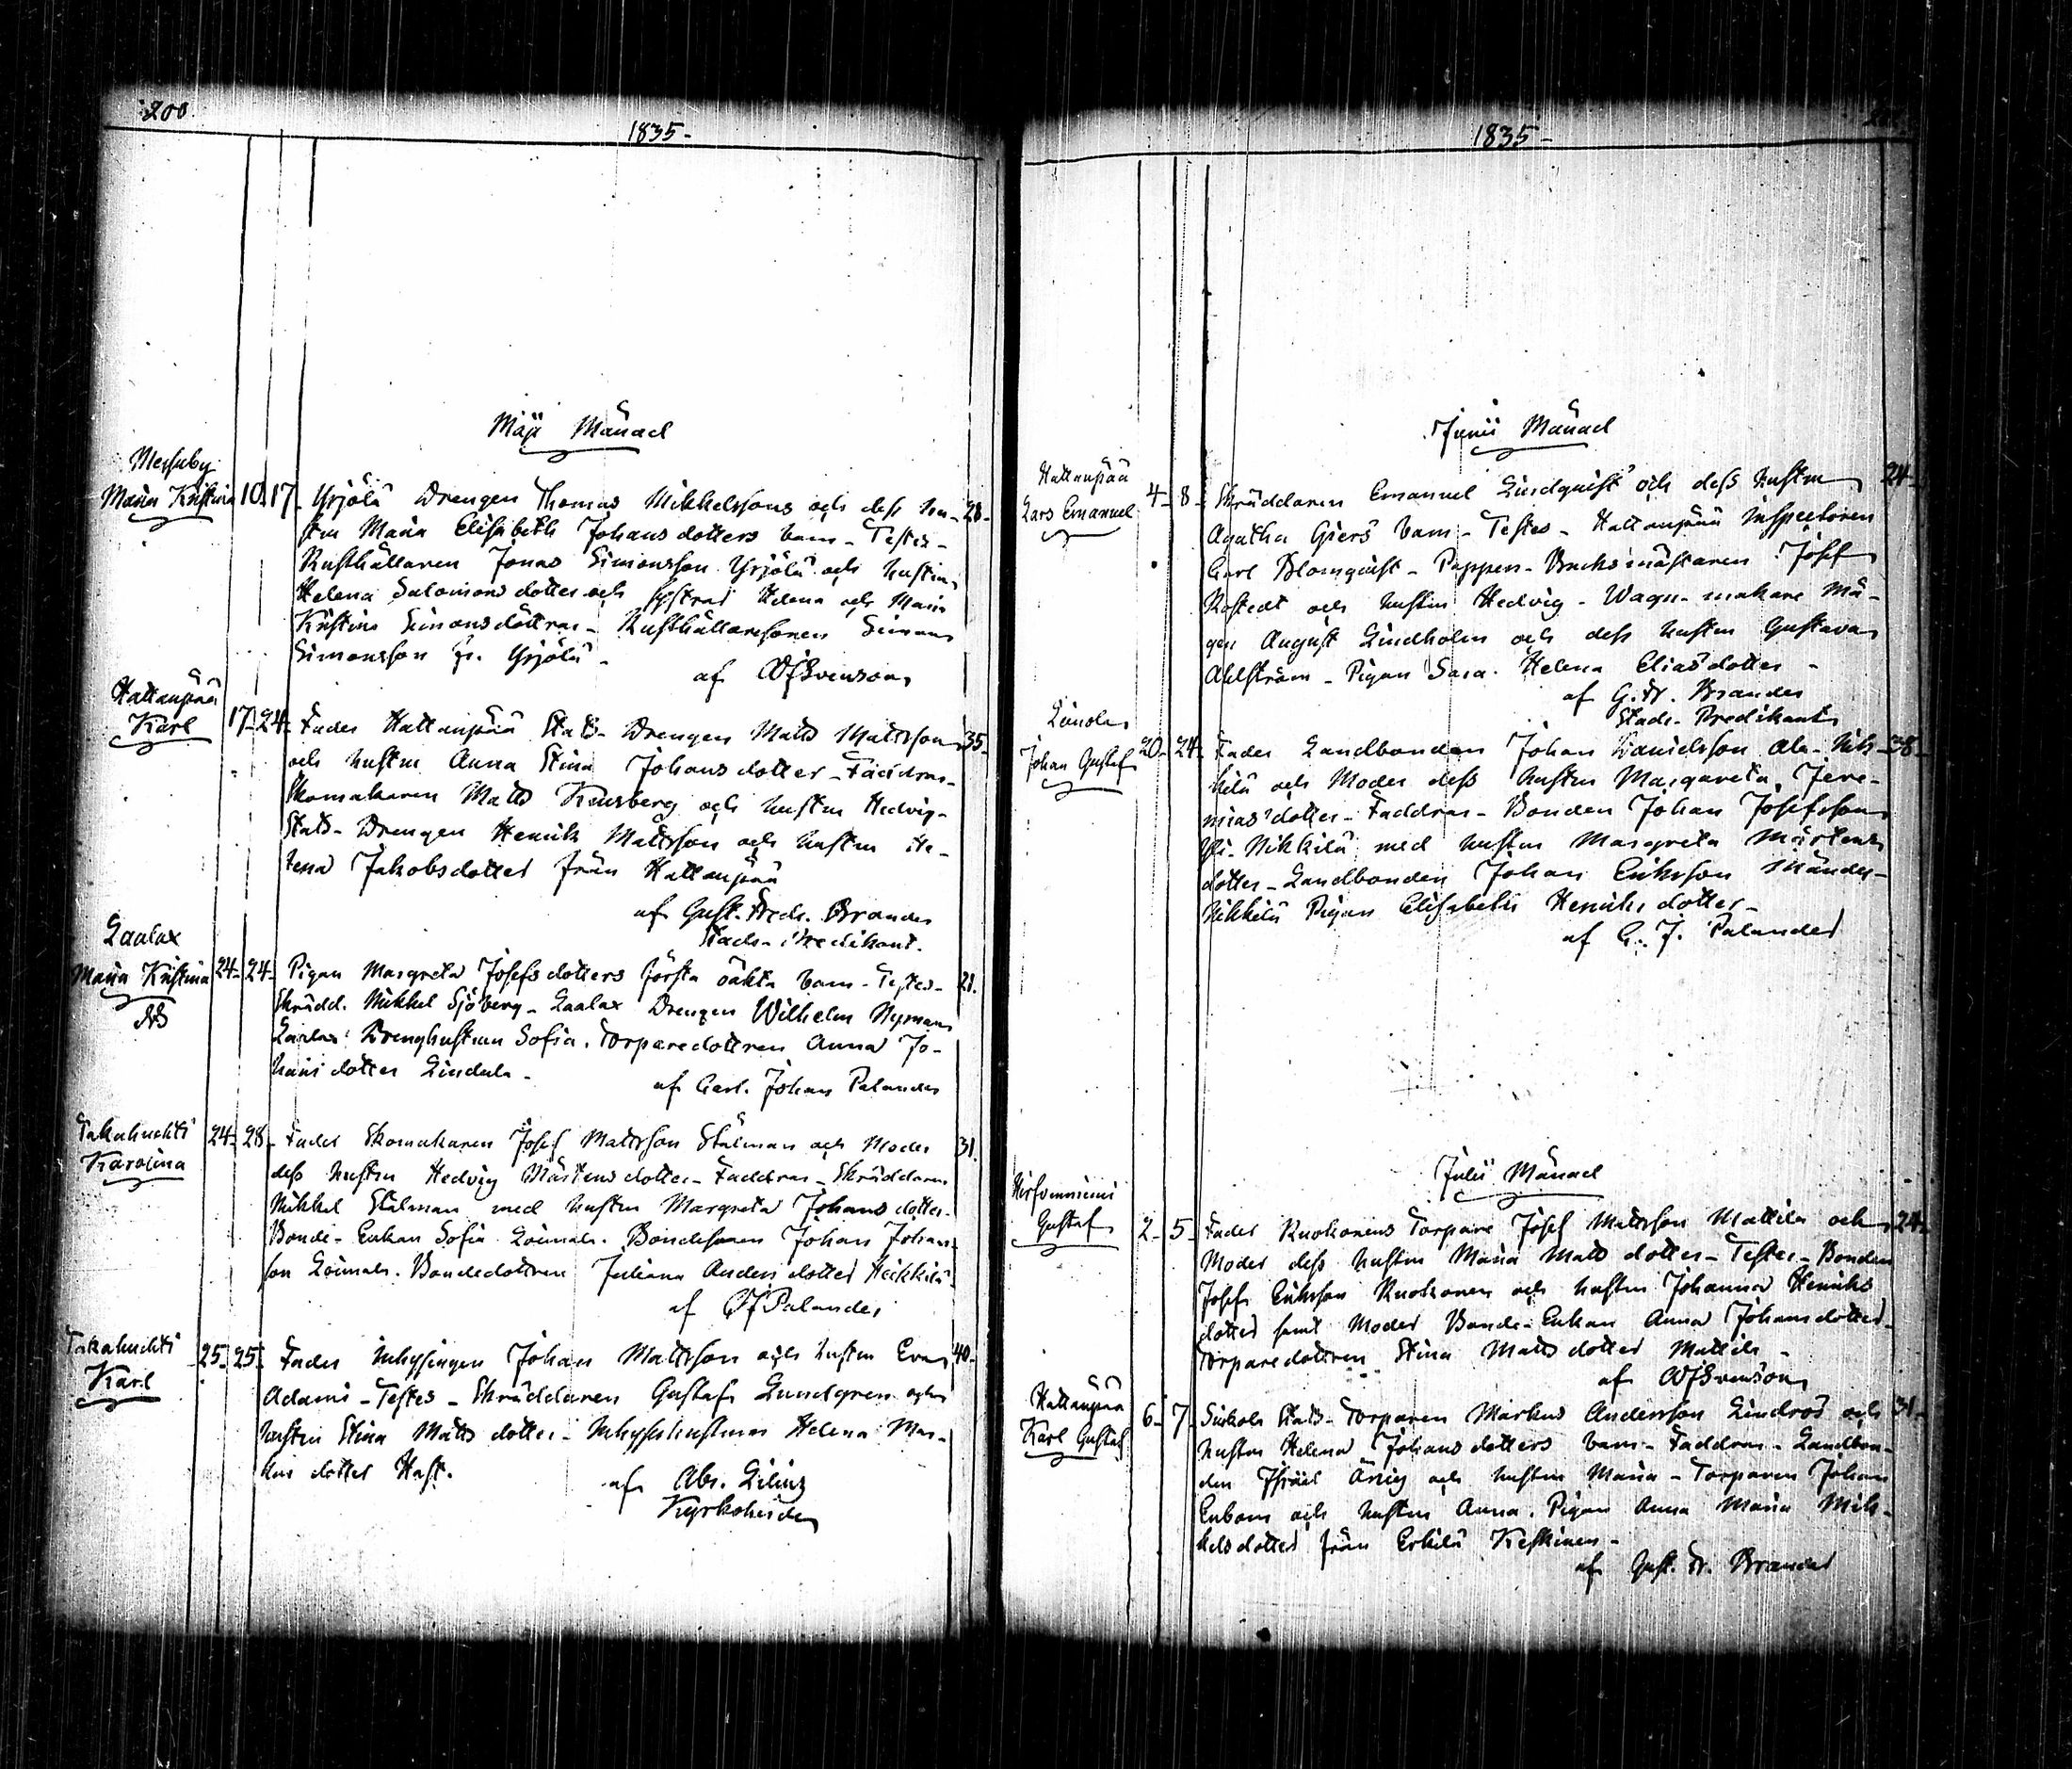 200
1835-
Maji Månad
Messuby
Maria Kristina 10. 17. Yrjölä Drengen Thomas Mikkelssons och dess hu- 28-
stru Maria Elisabeth Johansdotters barn - Testes-
Rusthållaren Jonas Simonsson Yrjölä och hustru
Helena Salomonsdotter och systrar Helena och Maria
Kristina Simonsdöttrar - Rusthållaresonen Simon
Simonsson fr. Yrjölä -
af Svenson
Hattanpää
Karl 17- 24- Fader Hattanpää Stats-Drengen Matts Mattsson 35-
och hustru Anna Stina Johansdotter - Faddrar-
Skomakaren Matts Kinsberg och hustru Hedvig-
Stats-Drengen Henrik Mattsson och hustru He-
lena Jakobsdotter från Hattanpää
af Gust. Fredr. Brander
Stads-Predikant.
Laalax
Maria Kristina 24- 24- Pigan Margreta Josefsdotters första oäkta barn - Testes- 21.
Skrädd. Mikkel Sjöberg - Laalax Drengen Wilhelm Nyman
Laalax Drenghustrun Sofia. Torparedottren Anna Jo-
hansdotter Lindula -
af Carl Johan Palander
Takahuhti
Karolina 24- 28- Fader Skomakaren Josef Mattsson Stålman och Moder 31.
dess hustru Hedvig Mårtensdotter - Faddrar - Skräddaren
Mikkel Stålman med hustru Margreta Johansdotter-
Bonde-Enkan Sofia Loimala. Bondesonen Johan Johans-
son Loimala. Bondedottren Juliana Andersdotter Heikkilä-
af CJPalander
Takahuhti
Karl 25- 25- Fader Inhysingen Johan Mattsson och hustru Eva 40-
Adami - Testes - Skräddaren Gustaf Lundgren och
hustru Stina Mattsdotter - Inhyseshustrun Helena Mar-
kusdotter Hast.
af Abr. Lilius
Kyrkoherde
1835-
Junii Månad
Hattanpää
Lars Emanuel 4- 8- Skräddaren Emanuel Lindquist och dess hustru 24-
Agatha Giers barn - Testes - Hattanpää Inspectoren
Carl Blomquist - Pappers-Bruksmästaren Josef
Rostedt och hustru Hedvig - Wagn-makare Må-
gen August Lindholm och dess hustru Gustava
Ahlström - Pigan Sara Helena Eliasdotter -
af G. Fr. Brander
Stads-Predikant
Linola
Johan Gustaf 20- 24- Fader Landbonden Johan Danielsson Ala-Nik- 38-
kilä och Moder dess hustru Margareta Jere-
miasdotter - Faddrar - Bonden Johan Josefsson
Yli-Nikkilä med hustru Margreta Mårtens
dotter - Landbonden Johan Eriksson
Nikkilä Pigan Elisabeth Henriksdotter -
af C. J. Palander
Julii Månad
Gustaf 2- 5- Fader Ruokonens Torpare Josef Mattsson Mattila och 24-
Moder dess hustru Maria Mattsdotter - Testes - Bonden
Josef Eriksson Ruokonen och hustru Johanna Henriks
dotter samt Moder Bonde-Enkan Anna Johansdotter-
Torparedottren Stina Mattsdotter Mattila -
af Svenson
Hattanpää
Karl Gustaf 6- 7- Stats-Torparen Markus Andersson Lindros och 31-
hustru Helena Johansdotters barn - Faddrar - Landbon-
den Israel Ärrig och hustru Maria - Torparen Johan
Enbom och hustru Anna. Pigan Anna Maria Mik-
kelsdotter från Erkilä Keskinen -
af Gust. Fr. Brander